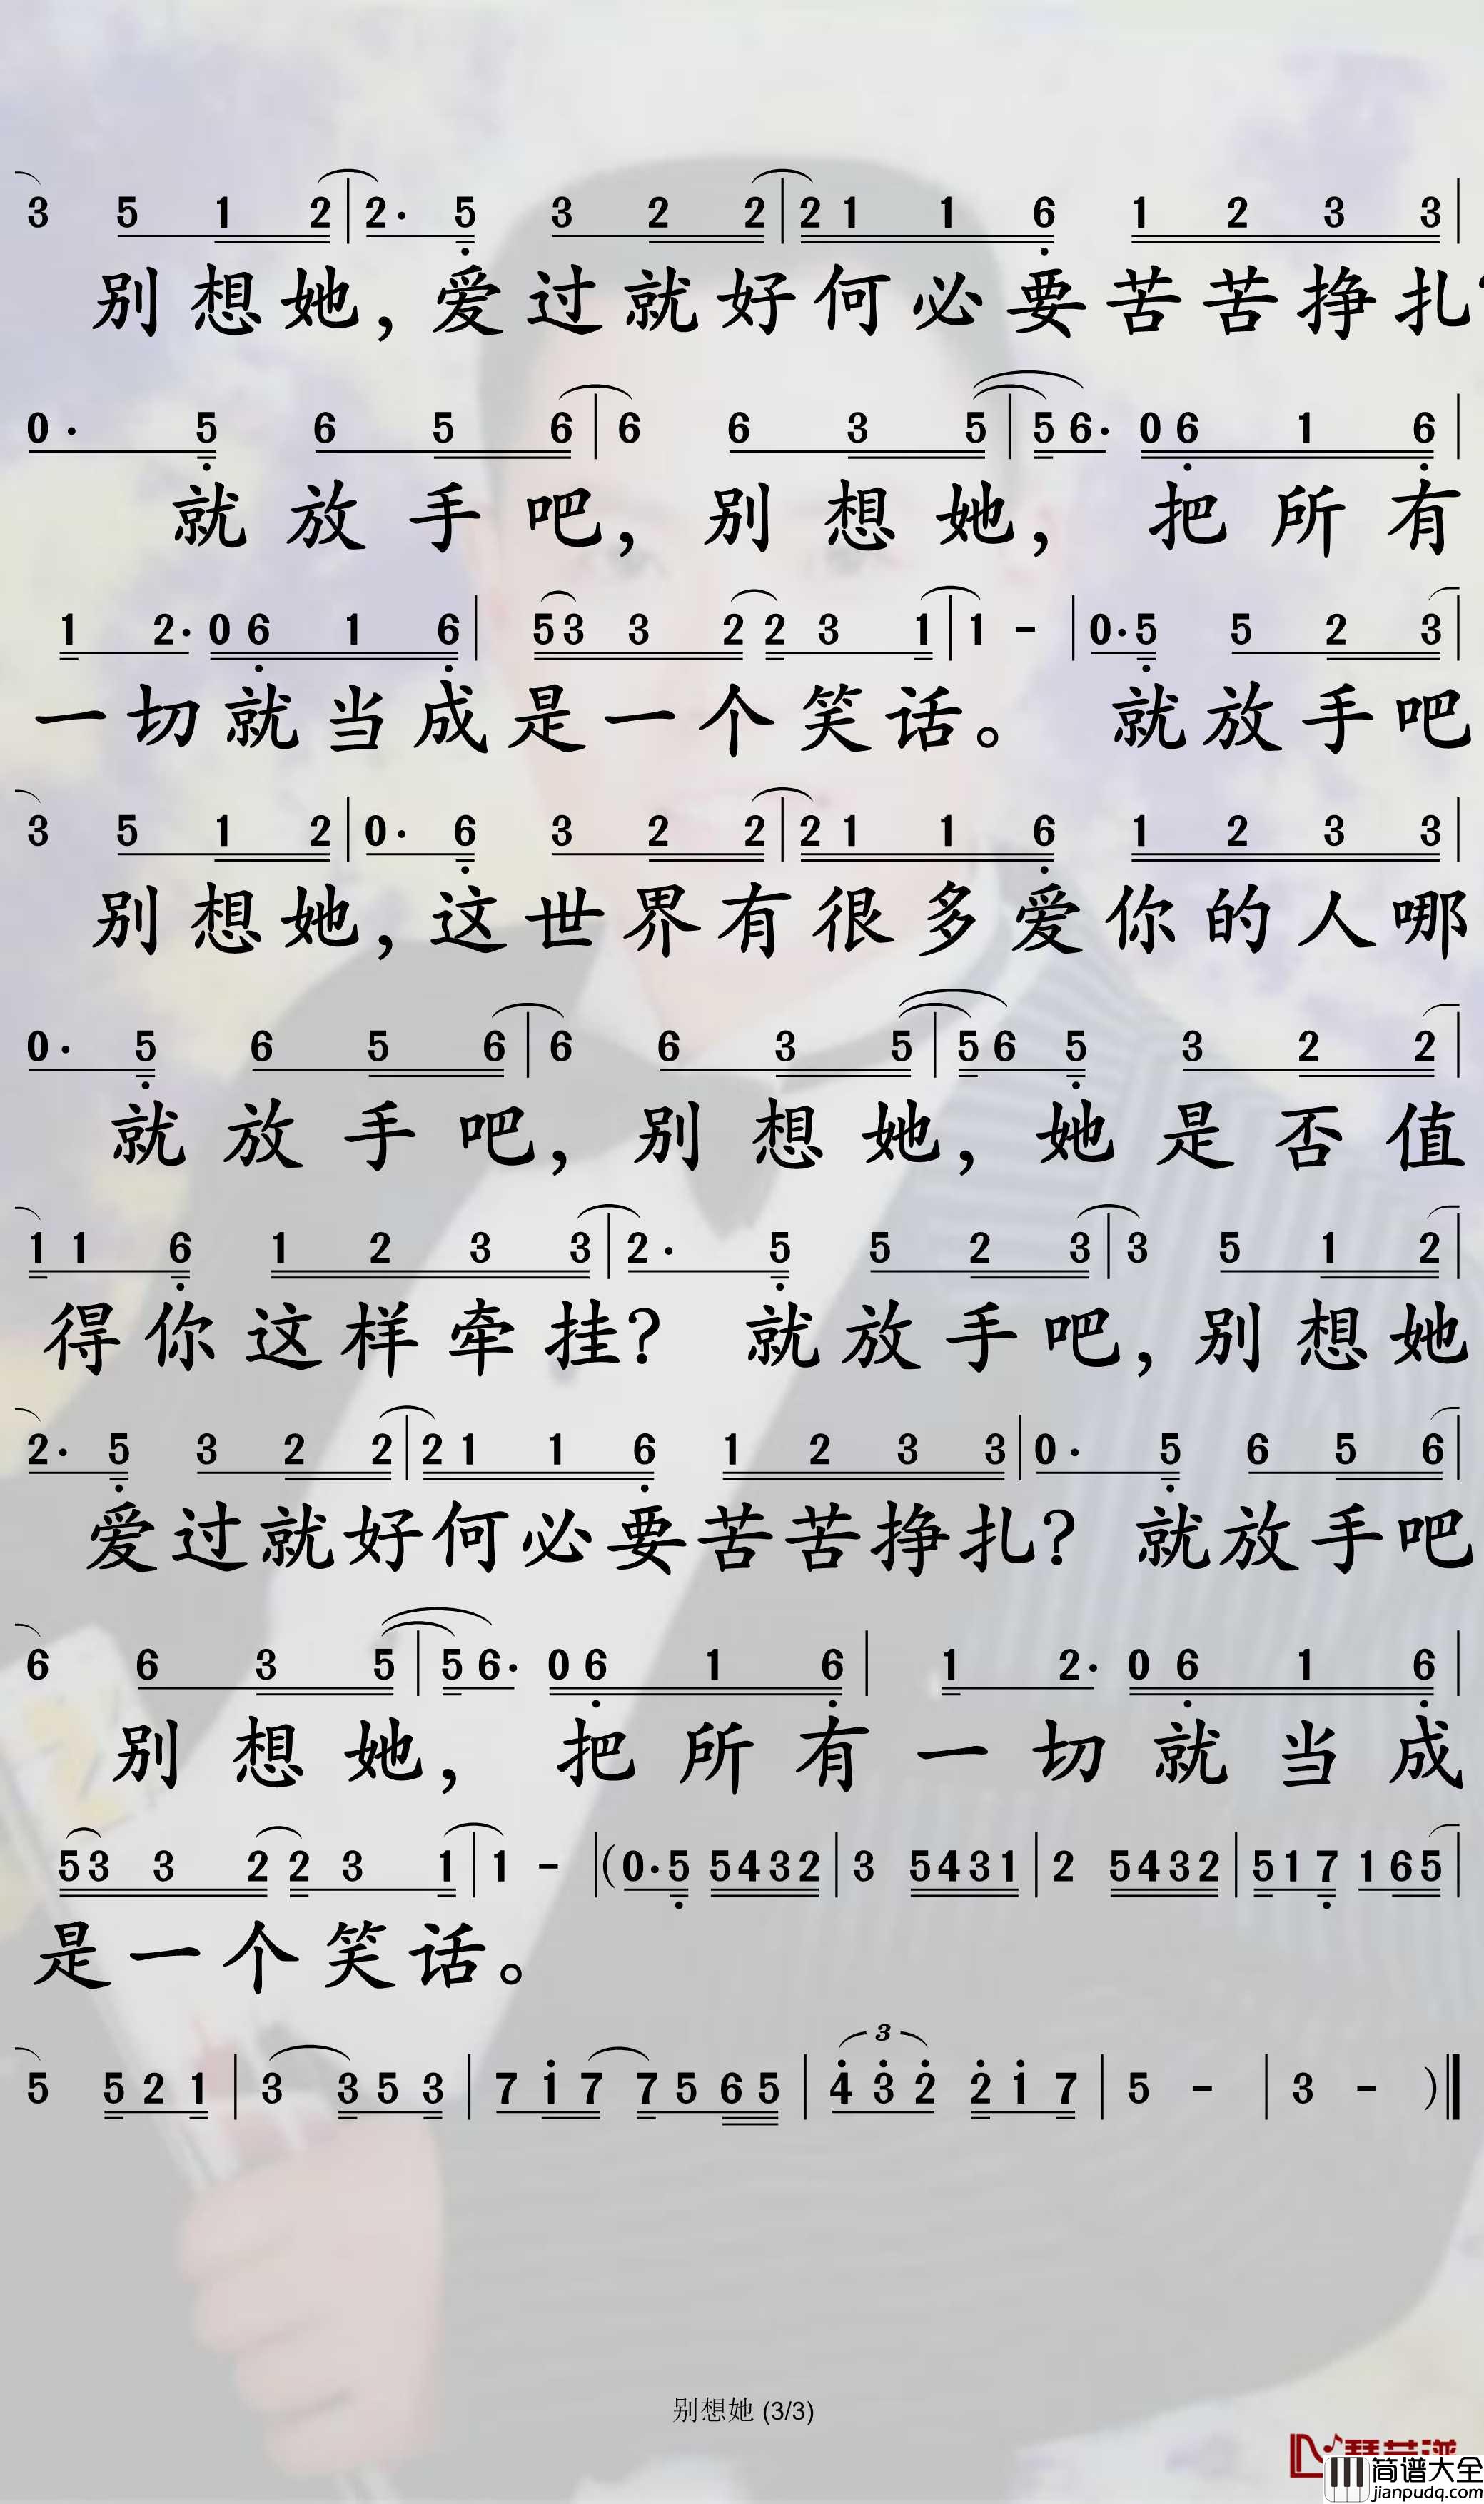 3 5 1 2 | 2· 5 3 2 2 | 2 1 1 6 1 2 3 3 |
别想她，爱过就好何必要苦苦挣扎?
0· 5 6 5 6 | 6 6 3 5 | 5 6· 0 6 1 6 |
就放手吧，别想她，把所有
1 2· 0 6 1 6 | 5 3 3 2 2 3 1 | 1 - | 0· 5 5 2 3 |
一切就当成是一个笑话。 就放手吧
3 5 1 2 | 0· 6 3 2 2 | 2 1 1 6 1 2 3 3 |
别想她，这世界有很多爱你的人哪
0· 5 6 5 6 | 6 6 3 5 | 5 6 5 3 2 2 |
就放手吧，别想她，她是否值
1 1 6 1 2 3 3 | 2· 5 5 2 3 | 3 5 1 2 |
得你这样牵挂? 就放手吧，别想她
2· 5 3 2 2 | 2 1 1 6 1 2 3 3 | 0· 5 6 5 6 |
爱过就好何必要苦苦挣扎? 就放手吧
6 6 3 5 | 5 6· 0 6 1 6 | 1 2· 0 6 1 6 |
别想她，把所有一切就当成
5 3 3 2 2 3 1 | 1 - | (0· 5 5 4 3 2 | 3 5 4 3 1 | 2 5 4 3 2 | 5 1 7 1 6 5 |
是一个笑话。
3
5 5 2 1 | 3 3 5 3 | 7 1 7 7 5 6 5 | 4 3 2 2 1 7 | 5 - | 3 - )
别想她 (3/3)
简谱大全
jianpudq.com